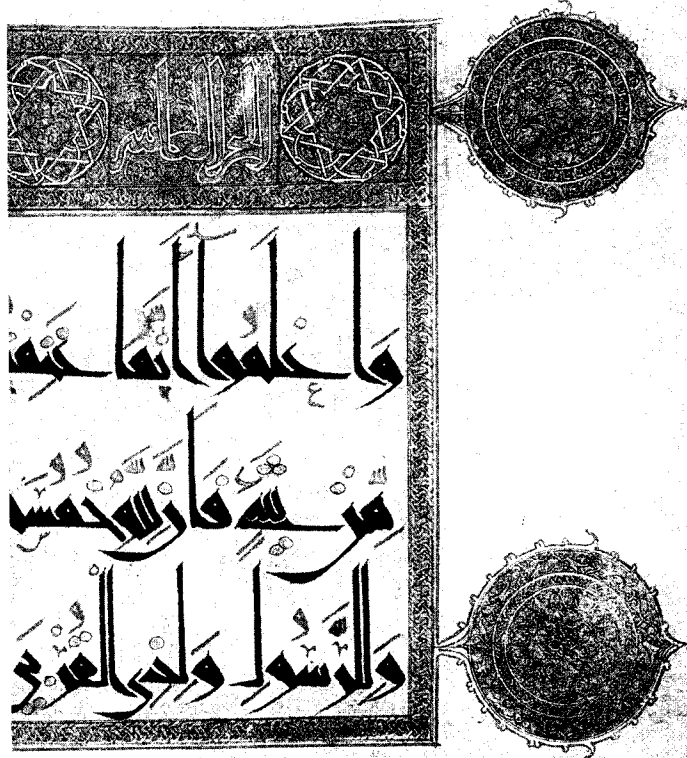 الجز العاشر
وَاعلموا أَنَّمَا
مِّن شَيْءٍ فَأَنَّ لِلَّهِ خُمُسَهُ
وَلِلرَّسُولِ وَلِذِي الْقُرْبَى